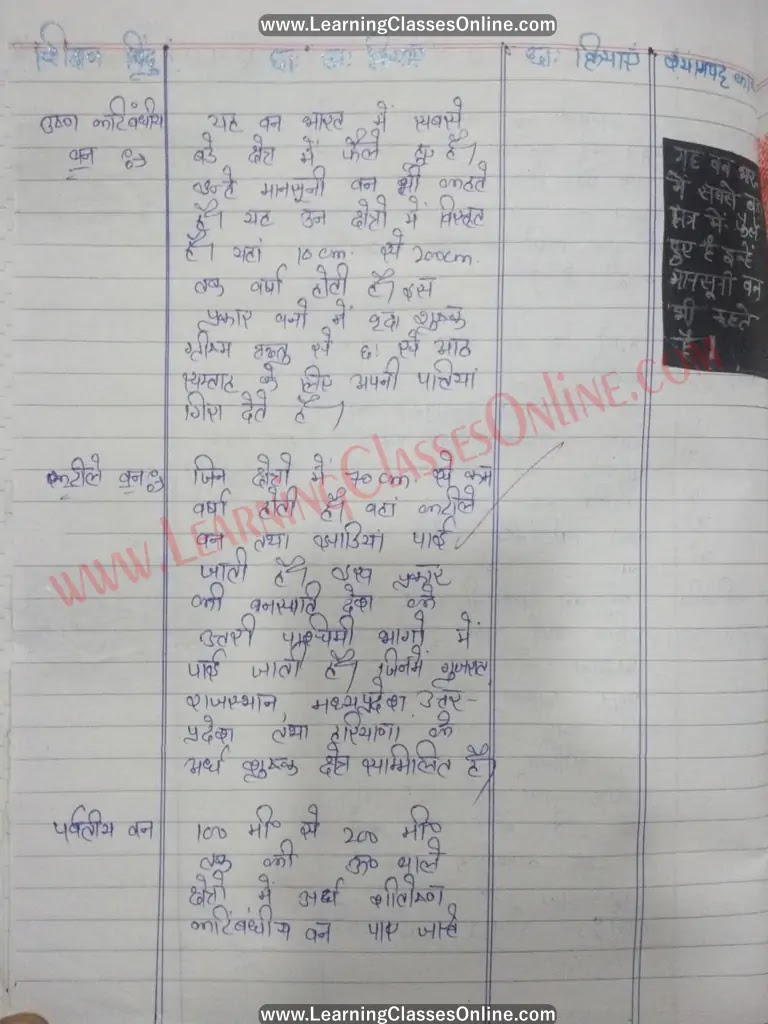 www.LearningClassesOnline.com
शिक्षण बिंदु
छा. क्रियाएं
श्यामपट्ट कार्य
उष्ण कटिबंधीय
वन
यह वन भारत में सबसे
बडे क्षेत्र में फैले हुए हैं।
उन्हे मानसूनी वन भी कहते
हैं। यह उन क्षेत्रो में विस्तृत
है। यहां 10 cm. से 200cm.
तक वर्षा होती है। इस
प्रकार वनो में वृक्ष शुष्क
ग्रीष्म ऋतु से छः से आठ
सप्ताह के लिए अपनी पत्तियां
गिरा देते हैं।
यह वन भारत
में सबसे बडे
क्षेत्र में फैले
हुए है इन्हें
मानसूनी वन
भी कहते
है।
कटीले वन
जिन क्षेत्रो में 70 cm. से कम
वर्षा होती है। वहां कटीले
वन तथा झाडियां पाई
जाती हैं। इस प्रकार
की वनस्पति देश के
उत्तरी पश्चिमी भागो में
पाई जाती है। जिनमें गुजरात
राजस्थान, मध्यप्रदेश, उत्तर-
प्रदेश तथा हरियाणा के
अर्ध शुष्क क्षेत्र सम्मिलित है।
पर्वतीय वन
100 मी० से 200 मी०
तक की ऊ० वाले
क्षेत्रो में अर्ध शीतोष्ण
कटिबंधीय वन पाए जाते
www.LearningClassesOnline.com
www.LearningClassesOnline.com